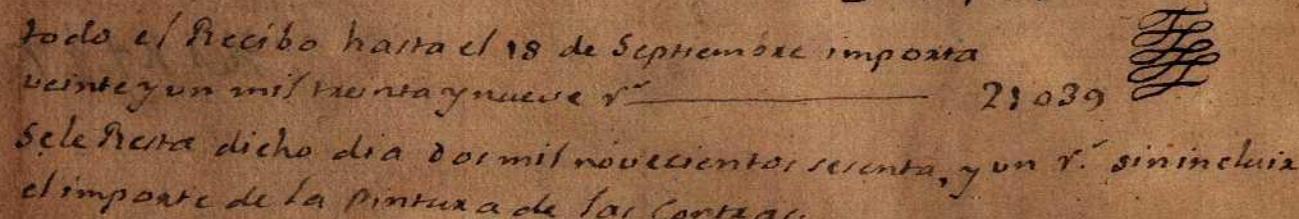 todo el Recibo hasta el 18 de Septiembre importa
veinte y un mil treinta y nueve r.s 21039
Sele Resta dicho dia dos mil novecientos sesenta, y un r.s sin incluir
el importe de la Pintura de las